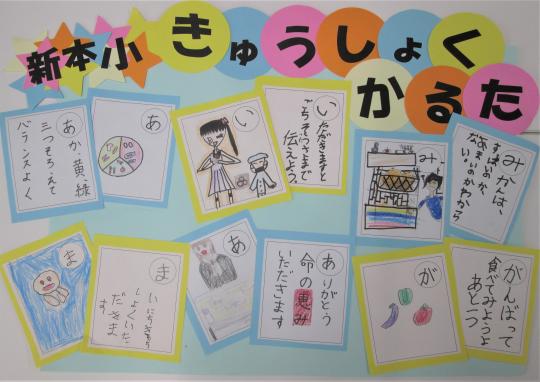 新本小
きゅうしょく
かるた
あ
あか、黄、緑
三つそろえて
バランスよく
い
いただきますと
ごちそうさまで
伝えよう
み
みかんは、
すっぱいのか、
あまいのかわから
ない
ま
ま
あ
ありがとう
命の恵み
いただきます
が
がんばって
食べてみようよ
あと一つ